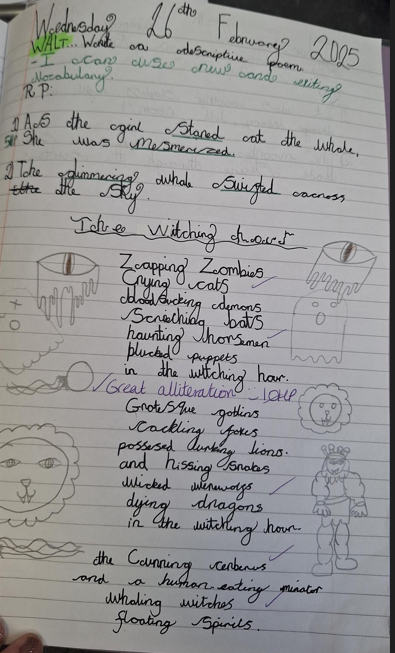 Wednesday 26th February 2025
WALT... Write a descriptive poem.
- I can use new and exciting
vocabulary.
R.P:
1) As the girl Stared at the whale,
She was Mesmerized.
2) The glimmering whale Swirled across
the Sky.
The Witching hour
Zapping Zombies
Crying cats
bloodsucking demons
Screeching bats
haunting horsemen
plucked puppets
in the witching hour.
Great alliteration
Grotesque goblins
Cackling
possesed lions.
and hissing snakes
Wicked werewolfs
dying dragons
in the witching hour.
the Cunning cerberus
and a human eating
whaling witches
floating Spirits.